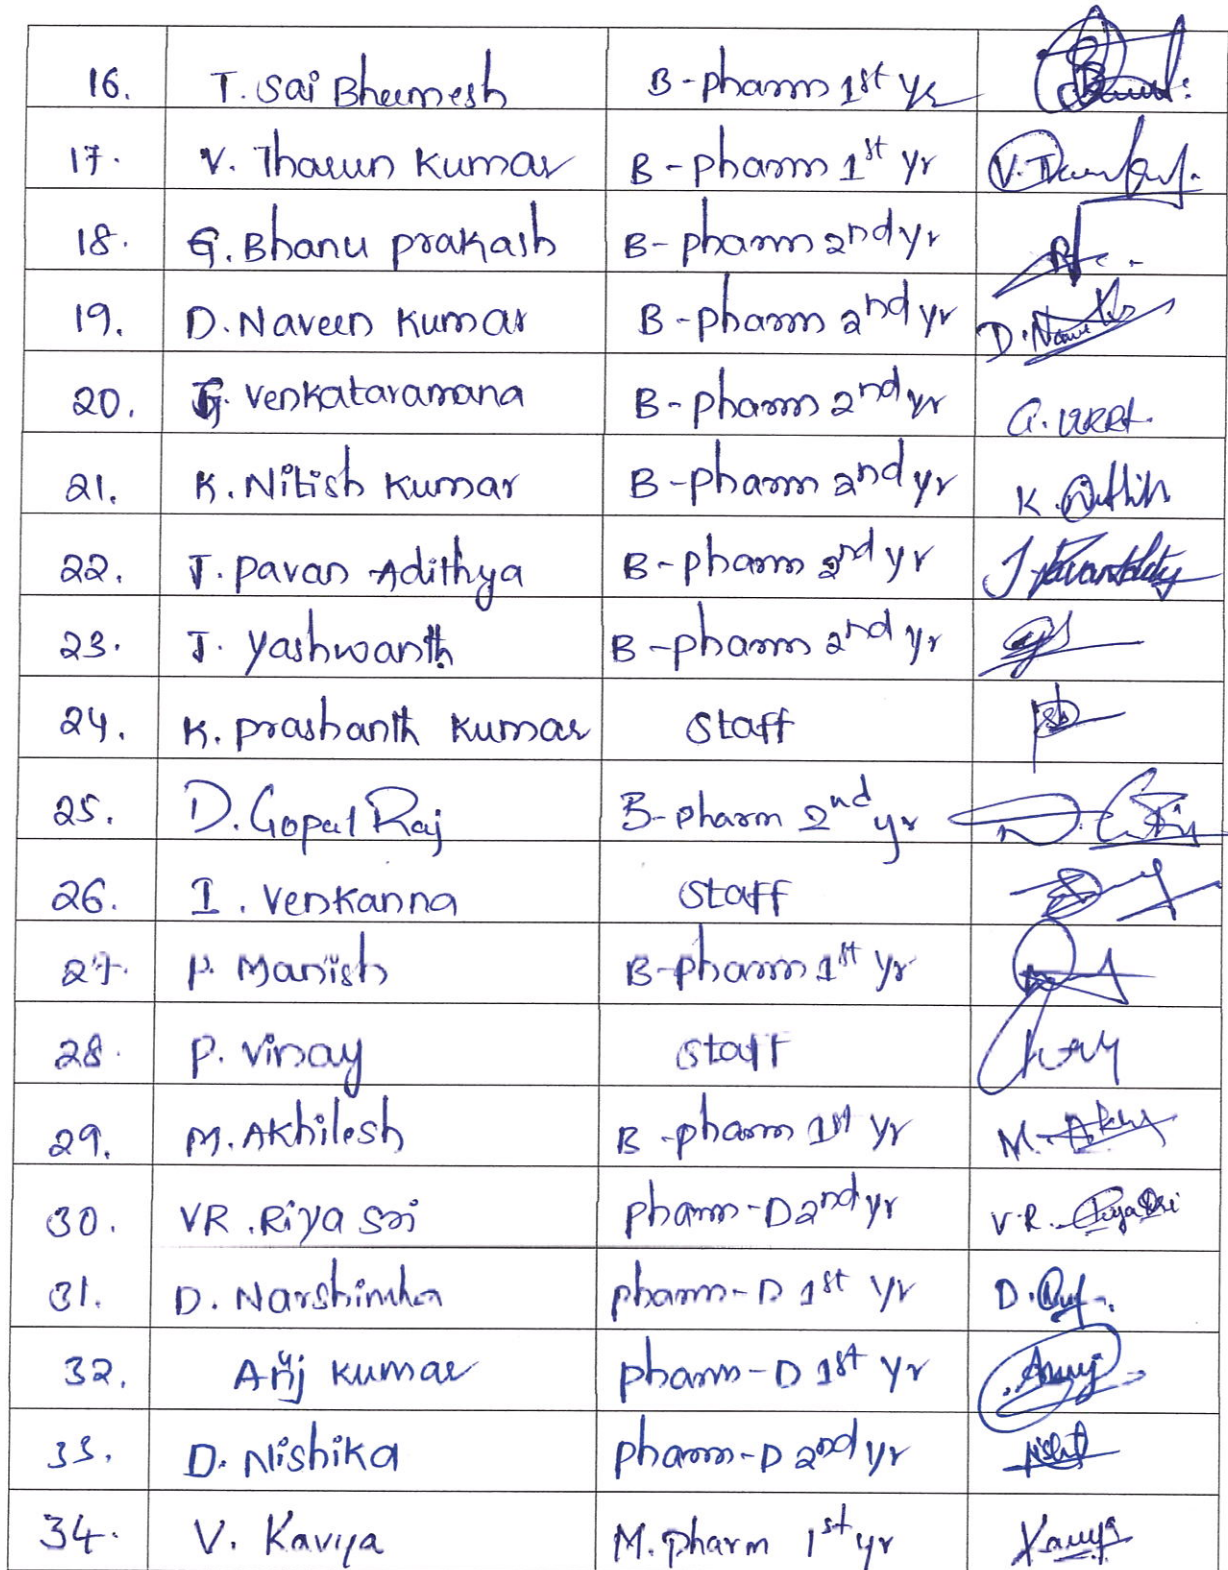 16. T. Sai Bheemesh B-pharm 1st yr
17. V. Tharun Kumar B-pharm 1st yr V.
18. G. Bhanu prakash B-pharm 2nd yr
19. D. Naveen Kumar B-pharm 2nd yr D.
20. G. Venkataramana B-pharm 2nd yr G.
21. K. Nitish Kumar B-pharm 2nd yr K. Nithin
22. J. Pavan Adithya B-pharm 2nd yr
23. J. Yashwanth B-pharm 2nd yr
24. K. prashanth Kumar Staff
25. D. Gopal Raj B-pharm 2nd yr
26. I. Venkanna Staff
27. P. Manish B-pharm 1st yr
28. P. Vinay Staff
29. M. Akhilesh B-pharm 1st yr M.
30. VR. Riya Sri pharm-D 2nd yr V.R. Riya Sri
31. D. Narshimha pharm-D 1st yr D.
32. Kumar pharm-D 1st yr Anuj
33. D. Nishika pharm-D 2nd yr
34. V. Kaviya M. pharm 1st yr